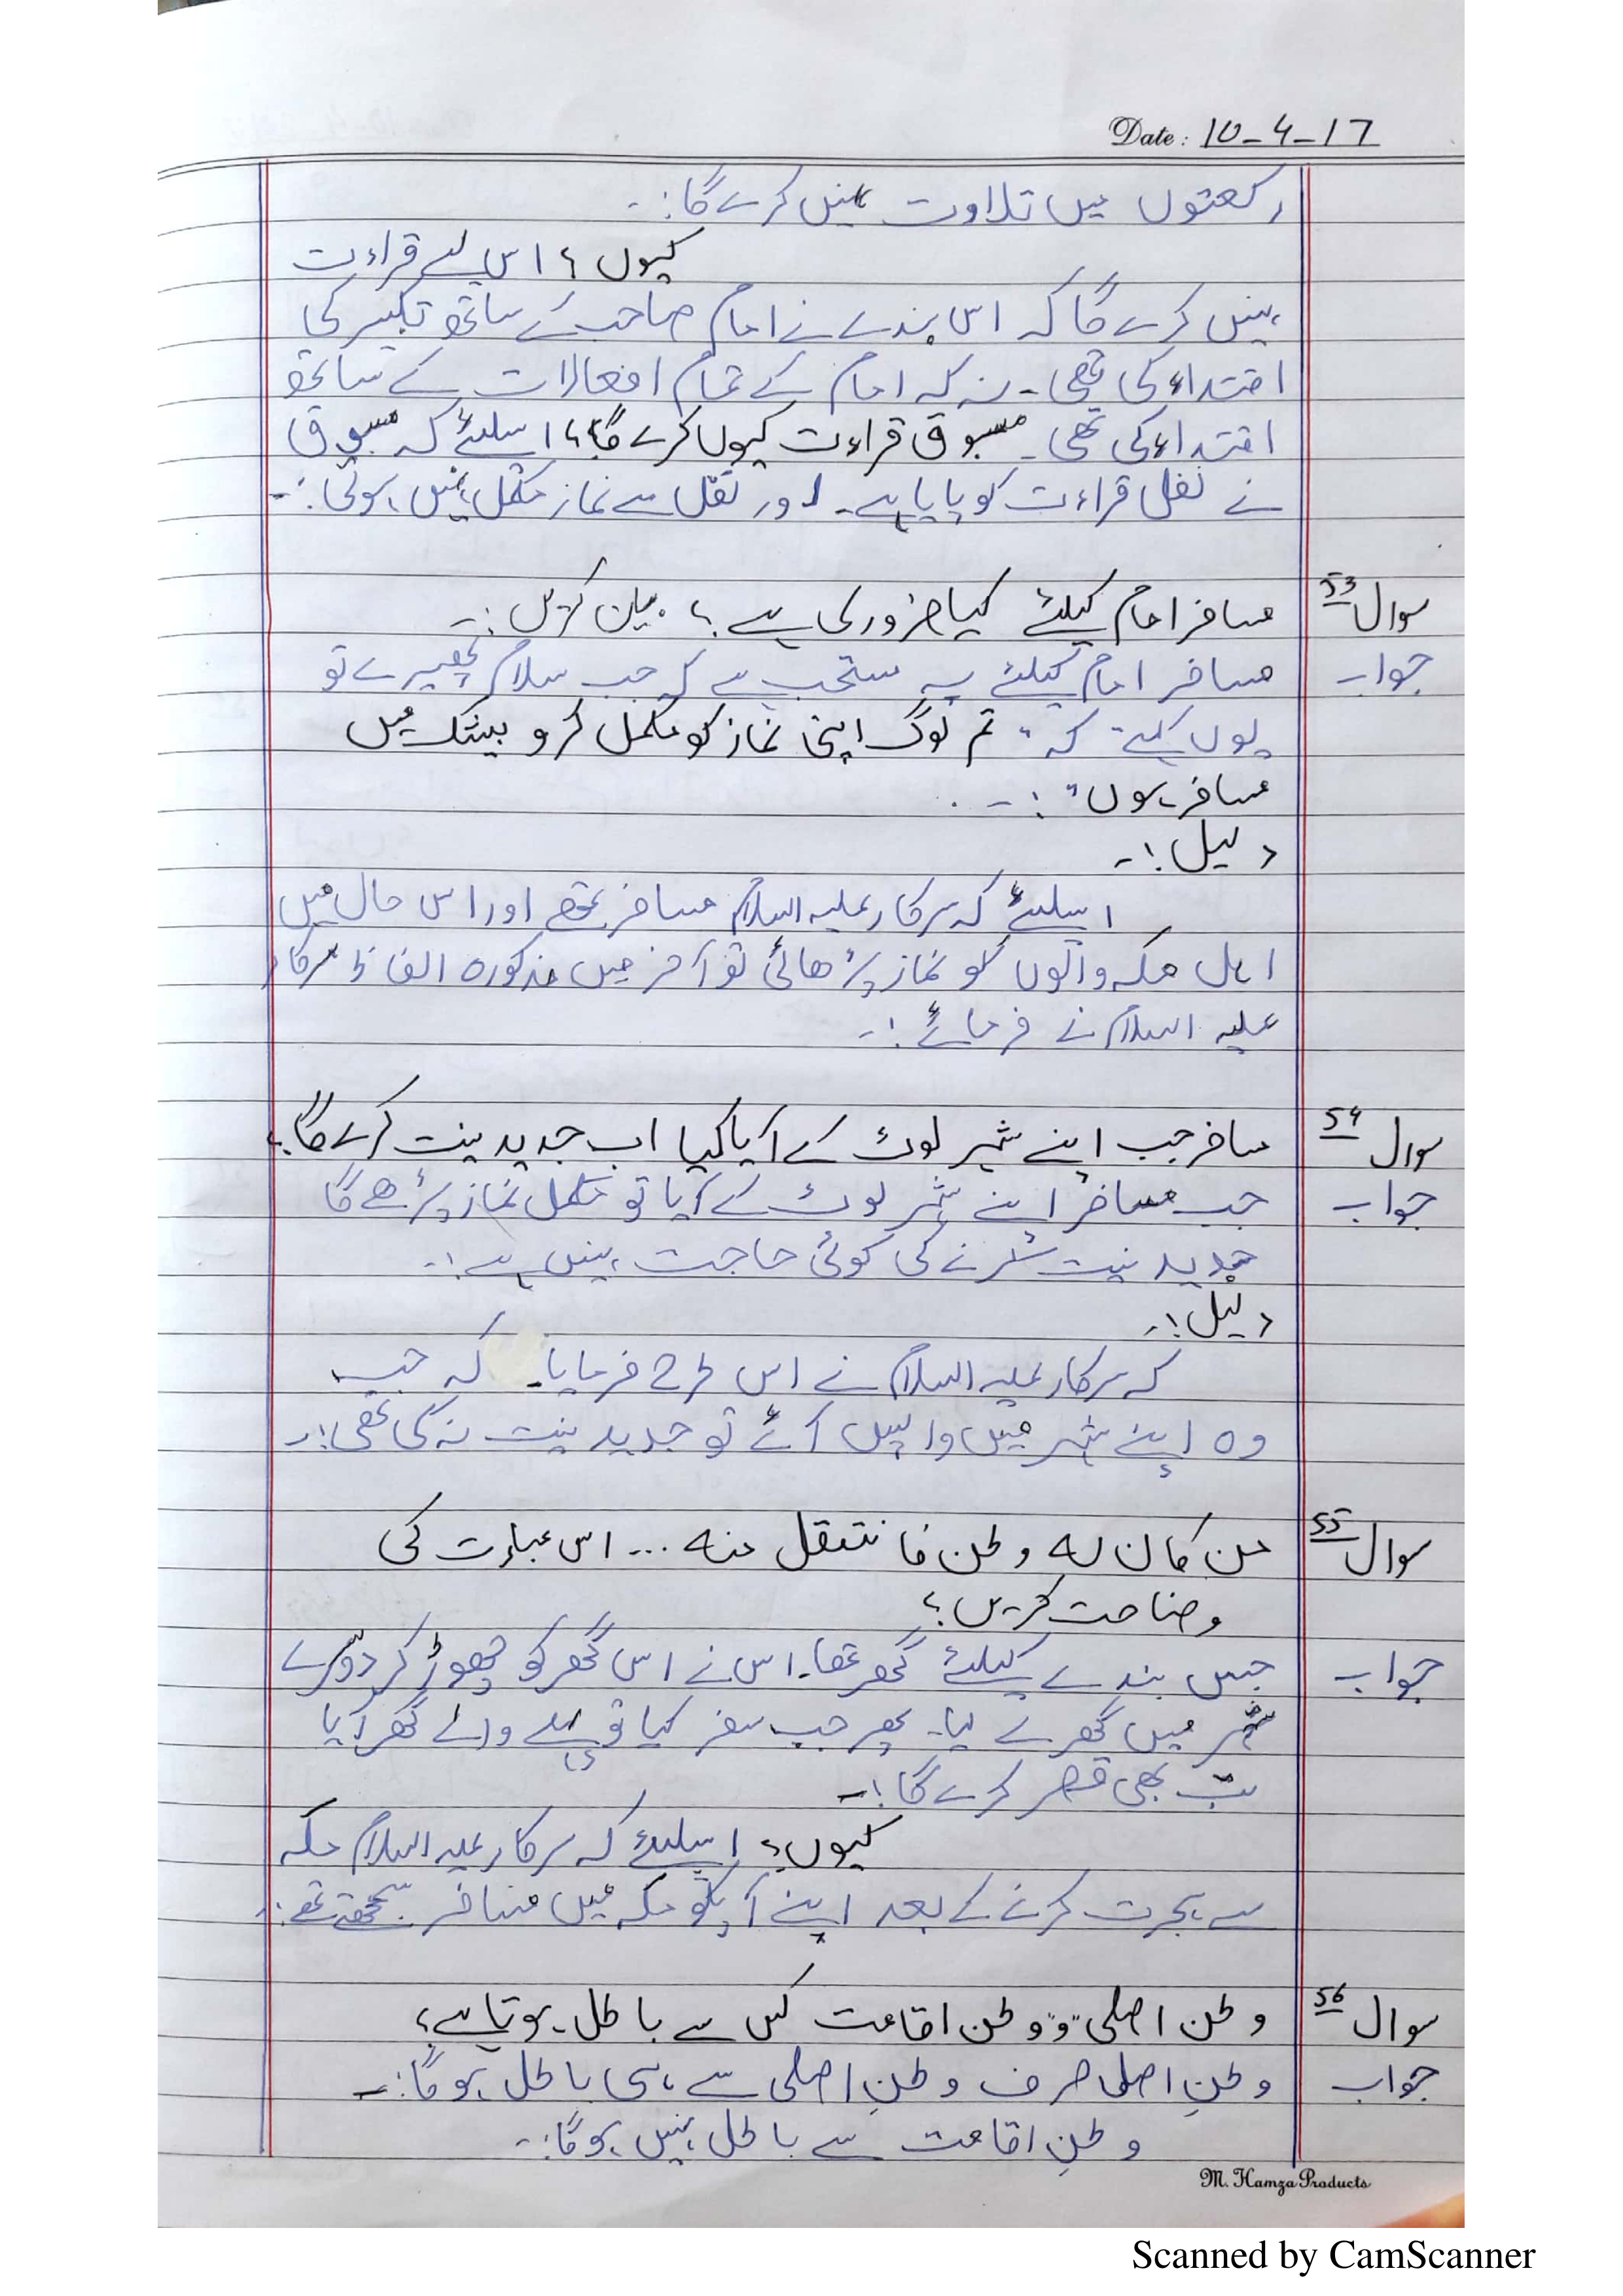 Date: 10-4-17
رکعتوں میں تلاوت نہیں کرے گا:۔
کیوں؟ اس لئے قراءت
نہیں کرے گا کہ اس بندے نے امام صاحب کے ساتھ تکبیر کی
اقتداء کی تھی۔ نہ کہ امام کے تمام افعالات کے ساتھ
اقتداء کی تھی۔ مسبوق قراءت کیوں کرے گا؟ اسلئے کہ مسبوق
نے نفل قراءت کو پایا ہے۔ اور نفل سے نماز مکمل نہیں ہوتی:۔
سوال 53 مسافر امام کیلئے کیا ضروری ہے؟ بیان کریں:۔
جواب مسافر امام کیلئے یہ مستحب ہے کہ جب سلام پھیرے تو
یوں کہے کہ "تم لوگ اپنی نماز کو مکمل کرو بیشک میں
مسافر ہوں":۔
دلیل:۔
اسلئے کہ سرکار علیہ السلام مسافر تھے اور اس حال میں
اہل مکہ والوں کو نماز پڑھائی تو آخر میں مذکورہ الفاظ سرکار
علیہ السلام نے فرمائے:۔
سوال 54 مسافر جب اپنے شہر لوٹ کے آیا کیا اب جدید نیت کرے گا؟
جواب جب مسافر اپنے شہر لوٹ کے آیا تو مکمل نماز پڑھے گا
جدید نیت کرنے کی کوئی حاجت نہیں ہے:۔
دلیل:۔
کہ سرکار علیہ السلام نے اس طرح فرمایا۔ کہ جب
وہ اپنے شہر میں واپس آئے تو جدید نیت نہ کی تھی:۔
سوال 55 من کان لہ وطن فانتقل منہ ... اس عبارت کی
وضاحت کریں؟
جواب جس بندے کیلئے گھر تھا۔ اس نے اس گھر کو چھوڑ کر دوسرے
شہر میں گھر لے لیا۔ پھر جب سفر کیا تو پہلے والے گھر آیا
تب بھی قصر کرے گا:۔
کیوں؟ اسلئے کہ سرکار علیہ السلام مکہ
سے ہجرت کرنے کے بعد اپنے آپکو مکہ میں مسافر سمجھتے تھے:۔
سوال 56 وطن اصلی و وطن اقامت کس سے باطل ہوتا ہے؟
جواب وطنِ اصلی صرف وطنِ اصلی سے ہی باطل ہوگا:۔
وطنِ اقامت سے باطل نہیں ہوگا:۔
M. Hamza Products
Scanned by CamScanner